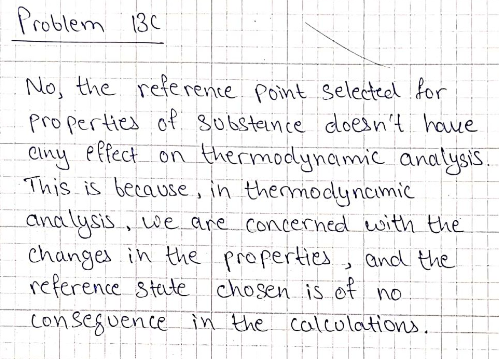 Problem 13C
No, the reference point selected for
properties of substance doesn't have
any effect on thermodynamic analysis.
This is because, in thermodynamic
analysis, we are concerned with the
changes in the properties, and the
reference state chosen is of no
consequence in the calculations.